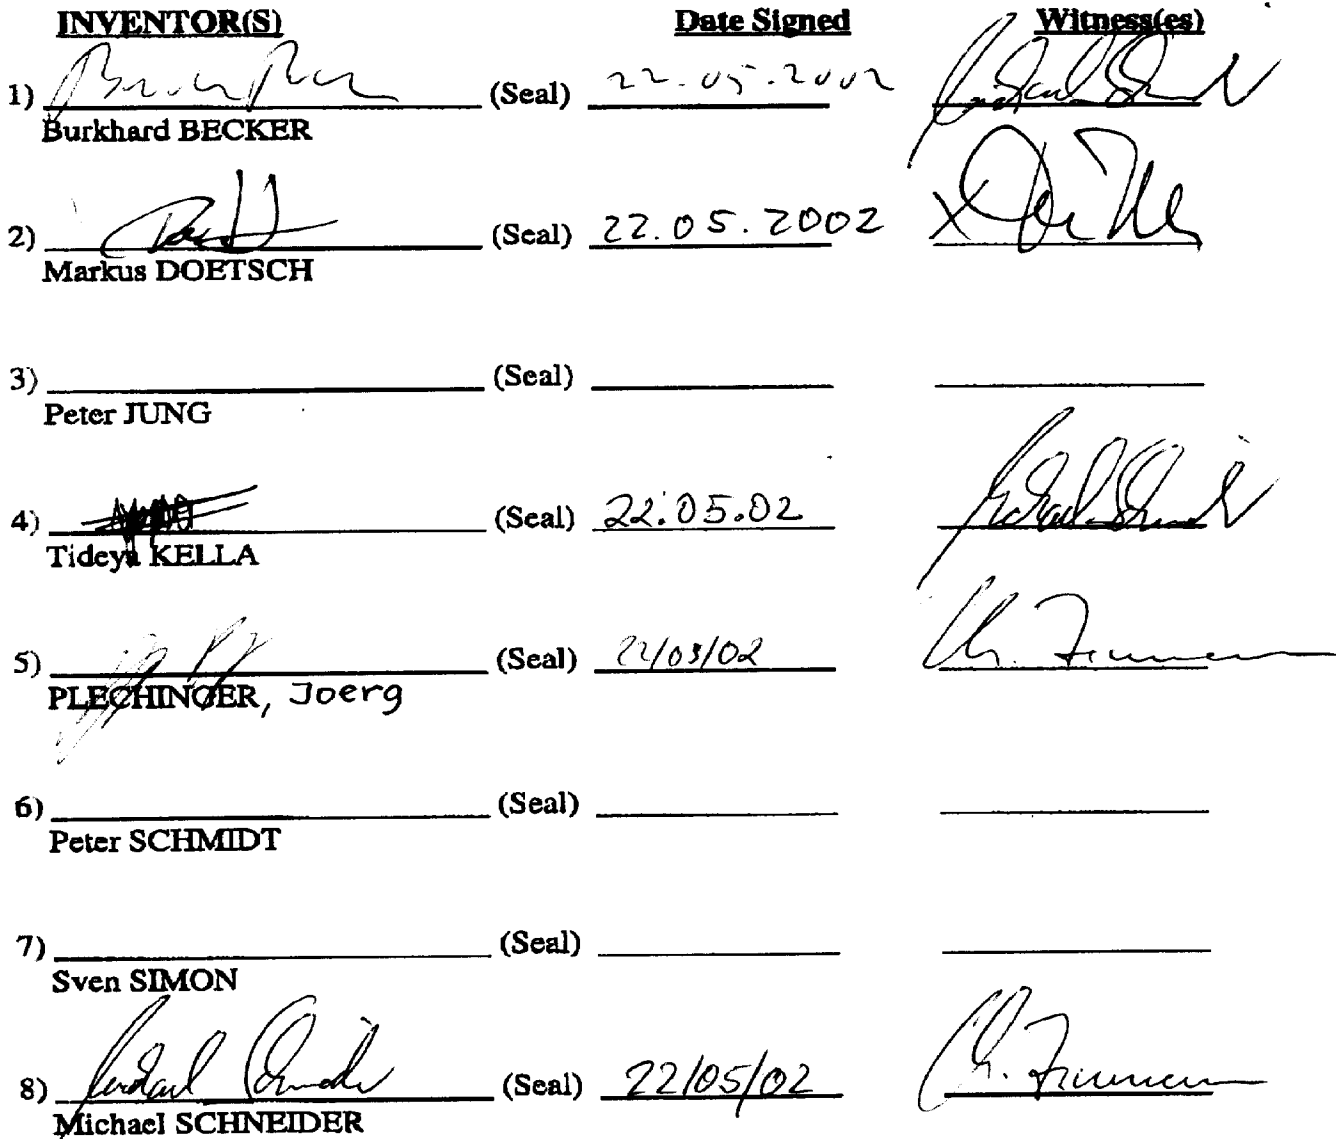 INVENTOR(S) Date Signed Witness(es)
1) (Seal) 22.05.2002
Burkhard BECKER
2) (Seal) 22.05.2002
Markus DOETSCH
3) (Seal)
Peter JUNG
4) (Seal) 22.05.02
Tideya KELLA
5) (Seal) 22/05/02
PLECHINGER, Joerg
6) (Seal)
Peter SCHMIDT
7) (Seal)
Sven SIMON
8) (Seal) 22/05/02
Michael SCHNEIDER